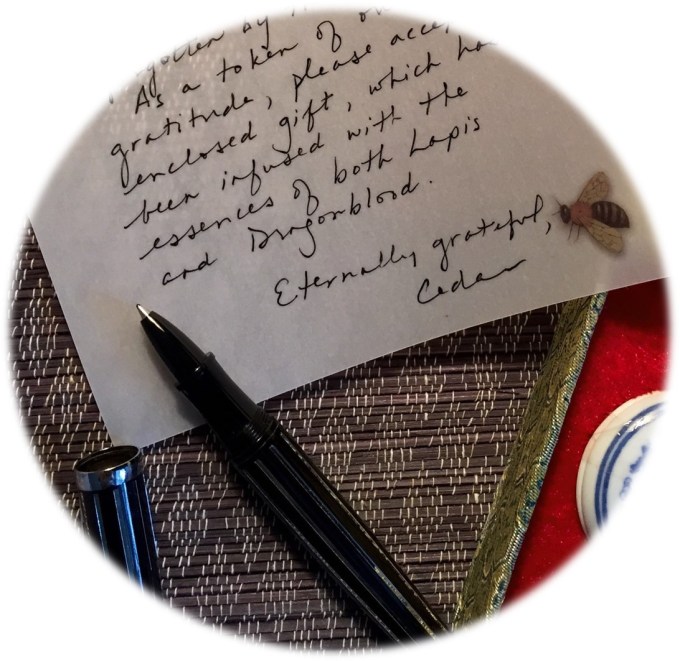 by
As a token of
gratitude, please
enclosed gift, which
been infused with the
essences of both Lapis
and Dragonblood.
Eternally grateful,
Cedar